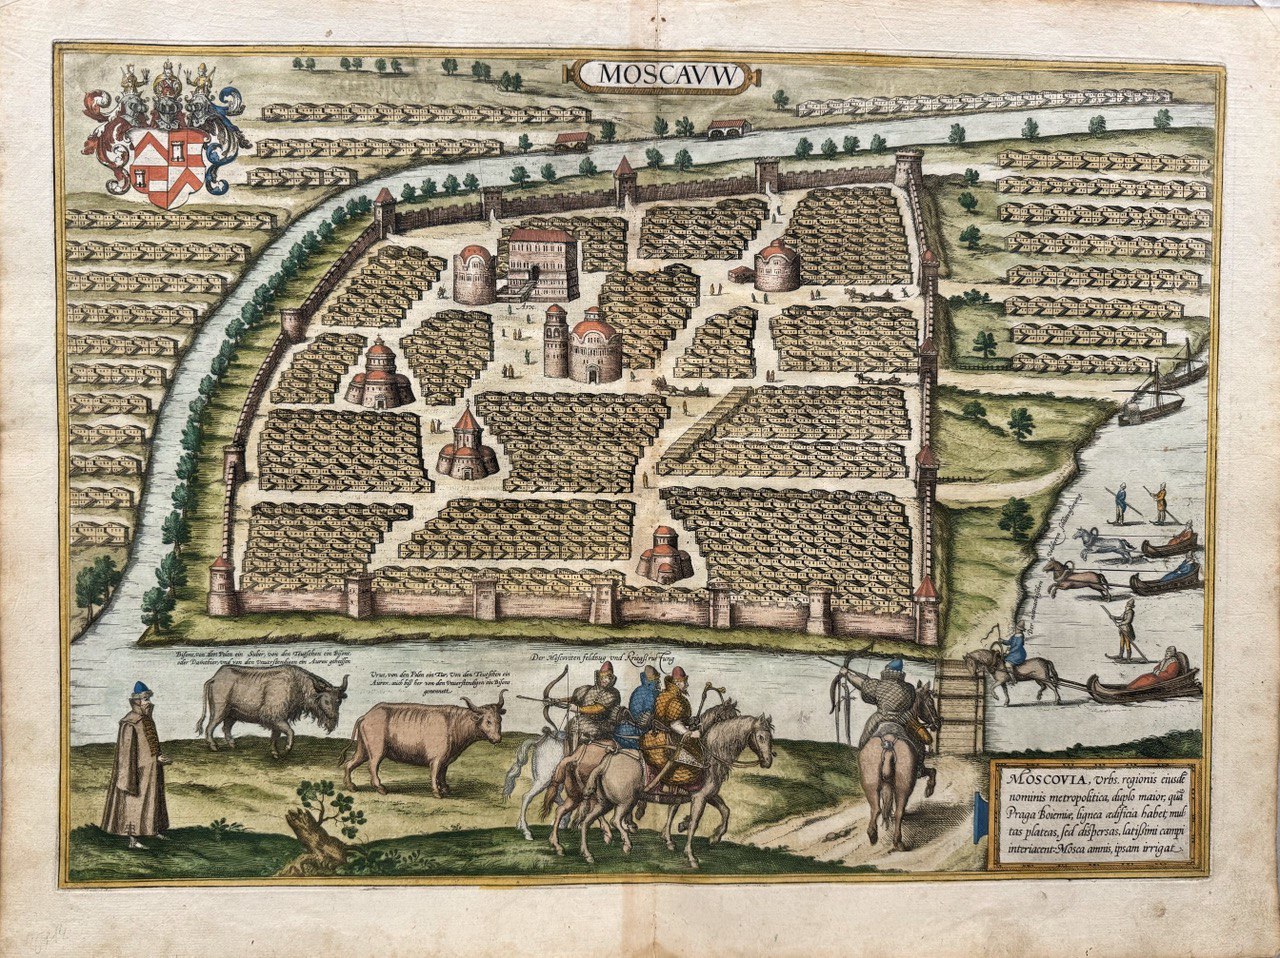 MOSCAVW
Bisons, von den Polen ein Suber, von den Teutschen ein Bisont
oder Damthier, vnd von den Vnuerstendigen ein Aurox geheissen
Vrus, von den Polen ein Tur, Von den Teutschen ein
Aurox, auch biß her von den Vnuerstendigen ein Bisons
genennett.
Der Moscouiten feldtzug vnd Kriegsrustung
MOSCOVIA, Vrbs, regionis eiusdē
nominis metropolitica, duplo maior, quā
Praga Boiemiæ, lignea ædificia habet, mul„
tas plateas, sed dispersas, latissimi campi
interiacent: Mosca amnis, ipsam irrigat.